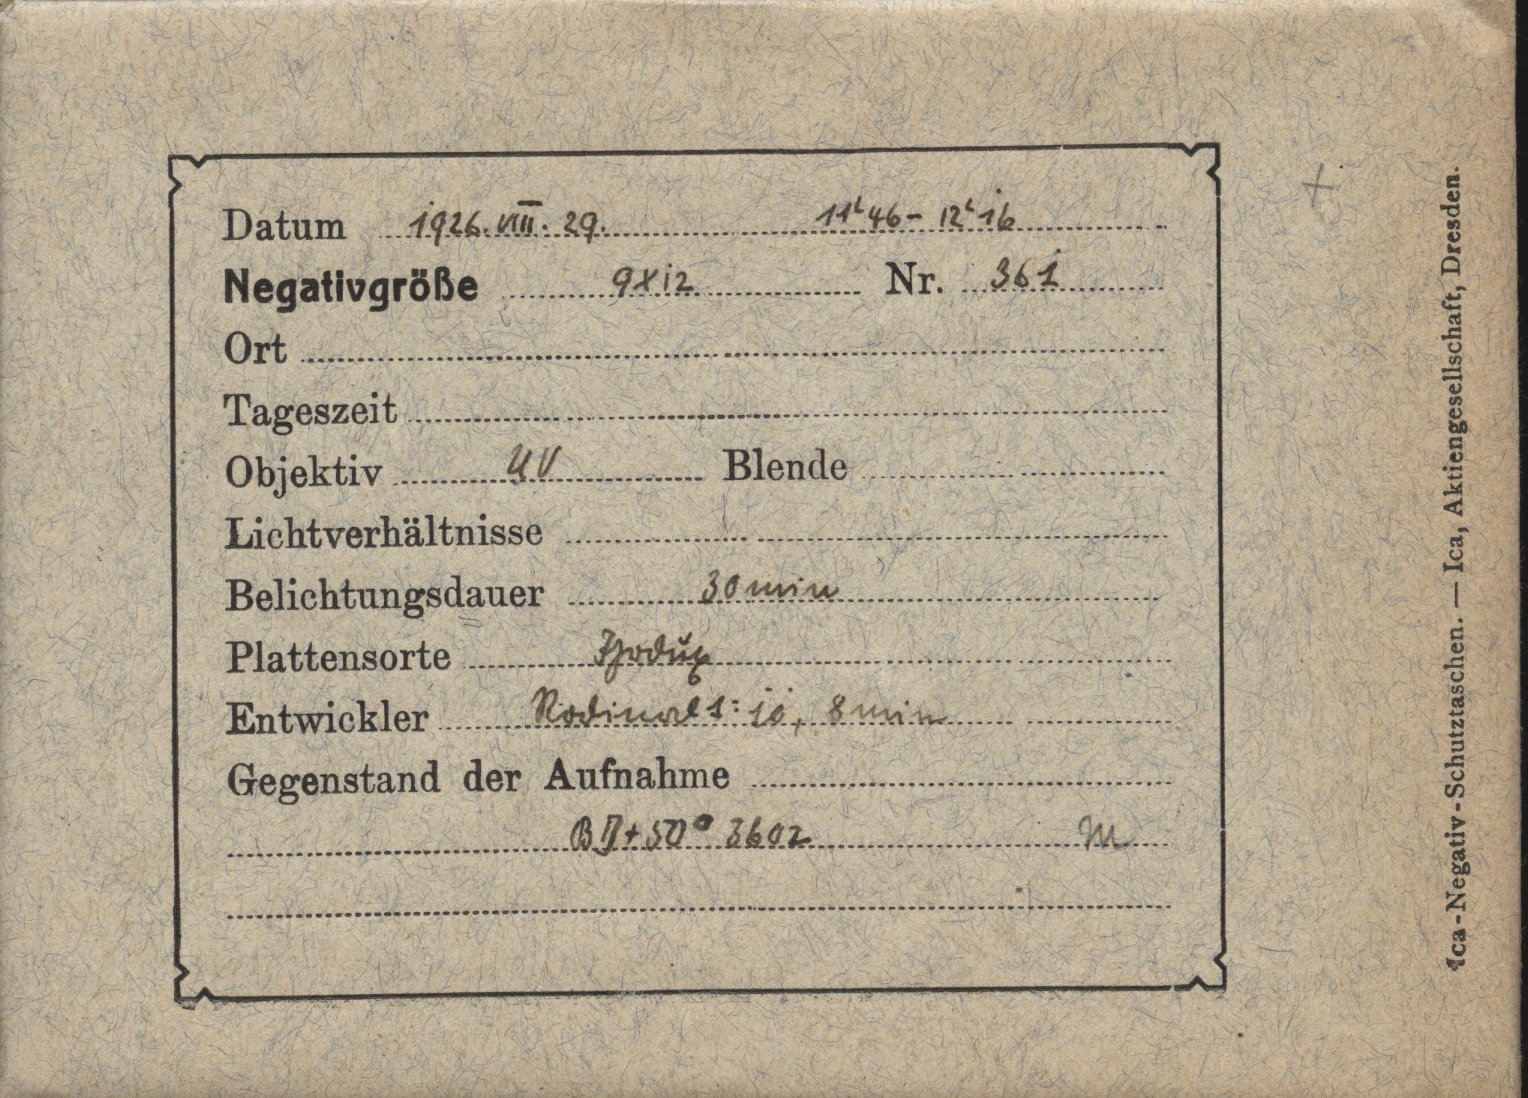 Datum 1926. VIII. 29. 11h 46 - 12h 16
Negativgröße 9x12 Nr. 361
Ort
Tageszeit
Objektiv UV Blende
Lichtverhältnisse
Belichtungsdauer 30 min
Plattensorte
Entwickler Rodinal 1:10, 8 min
Gegenstand der Aufnahme
BD+50° 3602 M
Ica-Negativ-Schutztaschen. — Ica, Aktiengesellschaft, Dresden.